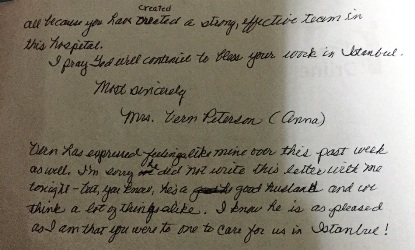 Created
all because you have created a strong, effective team in
this hospital.
I pray God will continue to bless your work in Istanbul.
Most sincerely
Mrs. Vern Peterson (Anna)
Vern has expressed feelings like mine over this past week
as well. I'm sorry he did not write this letter with me
tonight - but, you know, he's a good husband and we
think a lot of things alike. I know he is as pleased
as I am that you were to one to care for us in Istanbul!